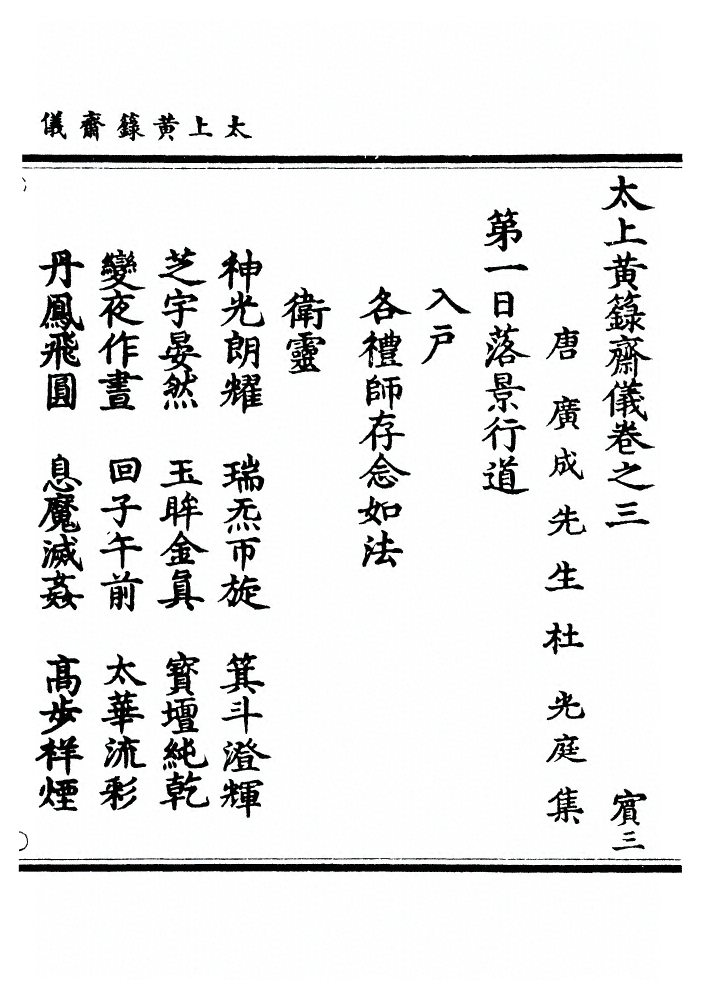 太上黃籙齋儀
太上黃籙齋儀卷之三
賓三
唐廣成先生杜光庭集
第一日落景行道
入戶
各禮師存念如法
衛靈
神光朗耀 瑞炁帀旋 箕斗澄輝
芝宇晏然 玉眸金真 寶壇純乾
變夜作晝 回子午前 太華流彩
丹鳳飛圓 息魔滅姦 高步祥煙